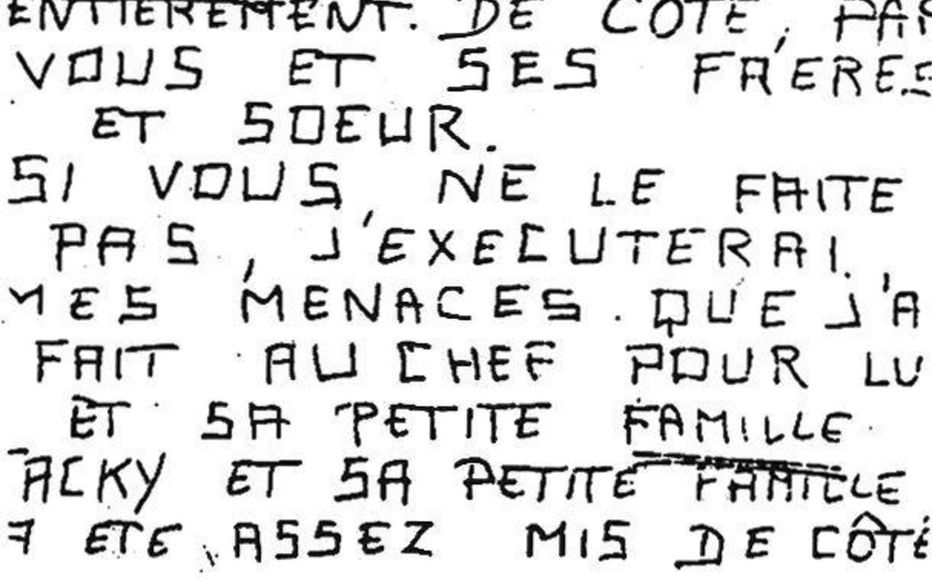 ENTIEREMENT. DE COTE, PAR
VOUS ET SES FRERES
ET SOEUR.
SI VOUS, NE LE FAITE
PAS, J'EXECUTERAI,
MES MENACES. QUE J'A
FAIT AU CHEF POUR LU
ET SA PETITE FAMILLE.
JACKY ET SA PETITE FAMILLE
A ETE ASSEZ MIS DE CÔTÉ